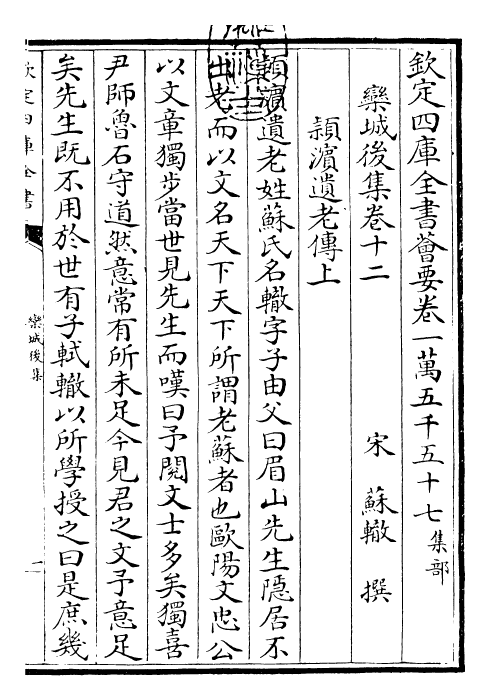 欽定四庫全書薈要卷一萬五千五十七 集部
欒城後集卷十二
宋 蘇轍 撰
潁濵遺老傳上
潁濵遺老姓蘇氏名轍字子由父曰眉山先生隠居不
出老而以文名天下天下所謂老蘇者也歐陽文忠公
以文章獨步當世見先生而嘆曰予閱文士多矣獨喜
尹師魯石守道然意常有所未足今見君之文予意足
矣先生既不用於世有子軾轍以所學授之曰是庶幾
欽定四庫全書
欒城後集